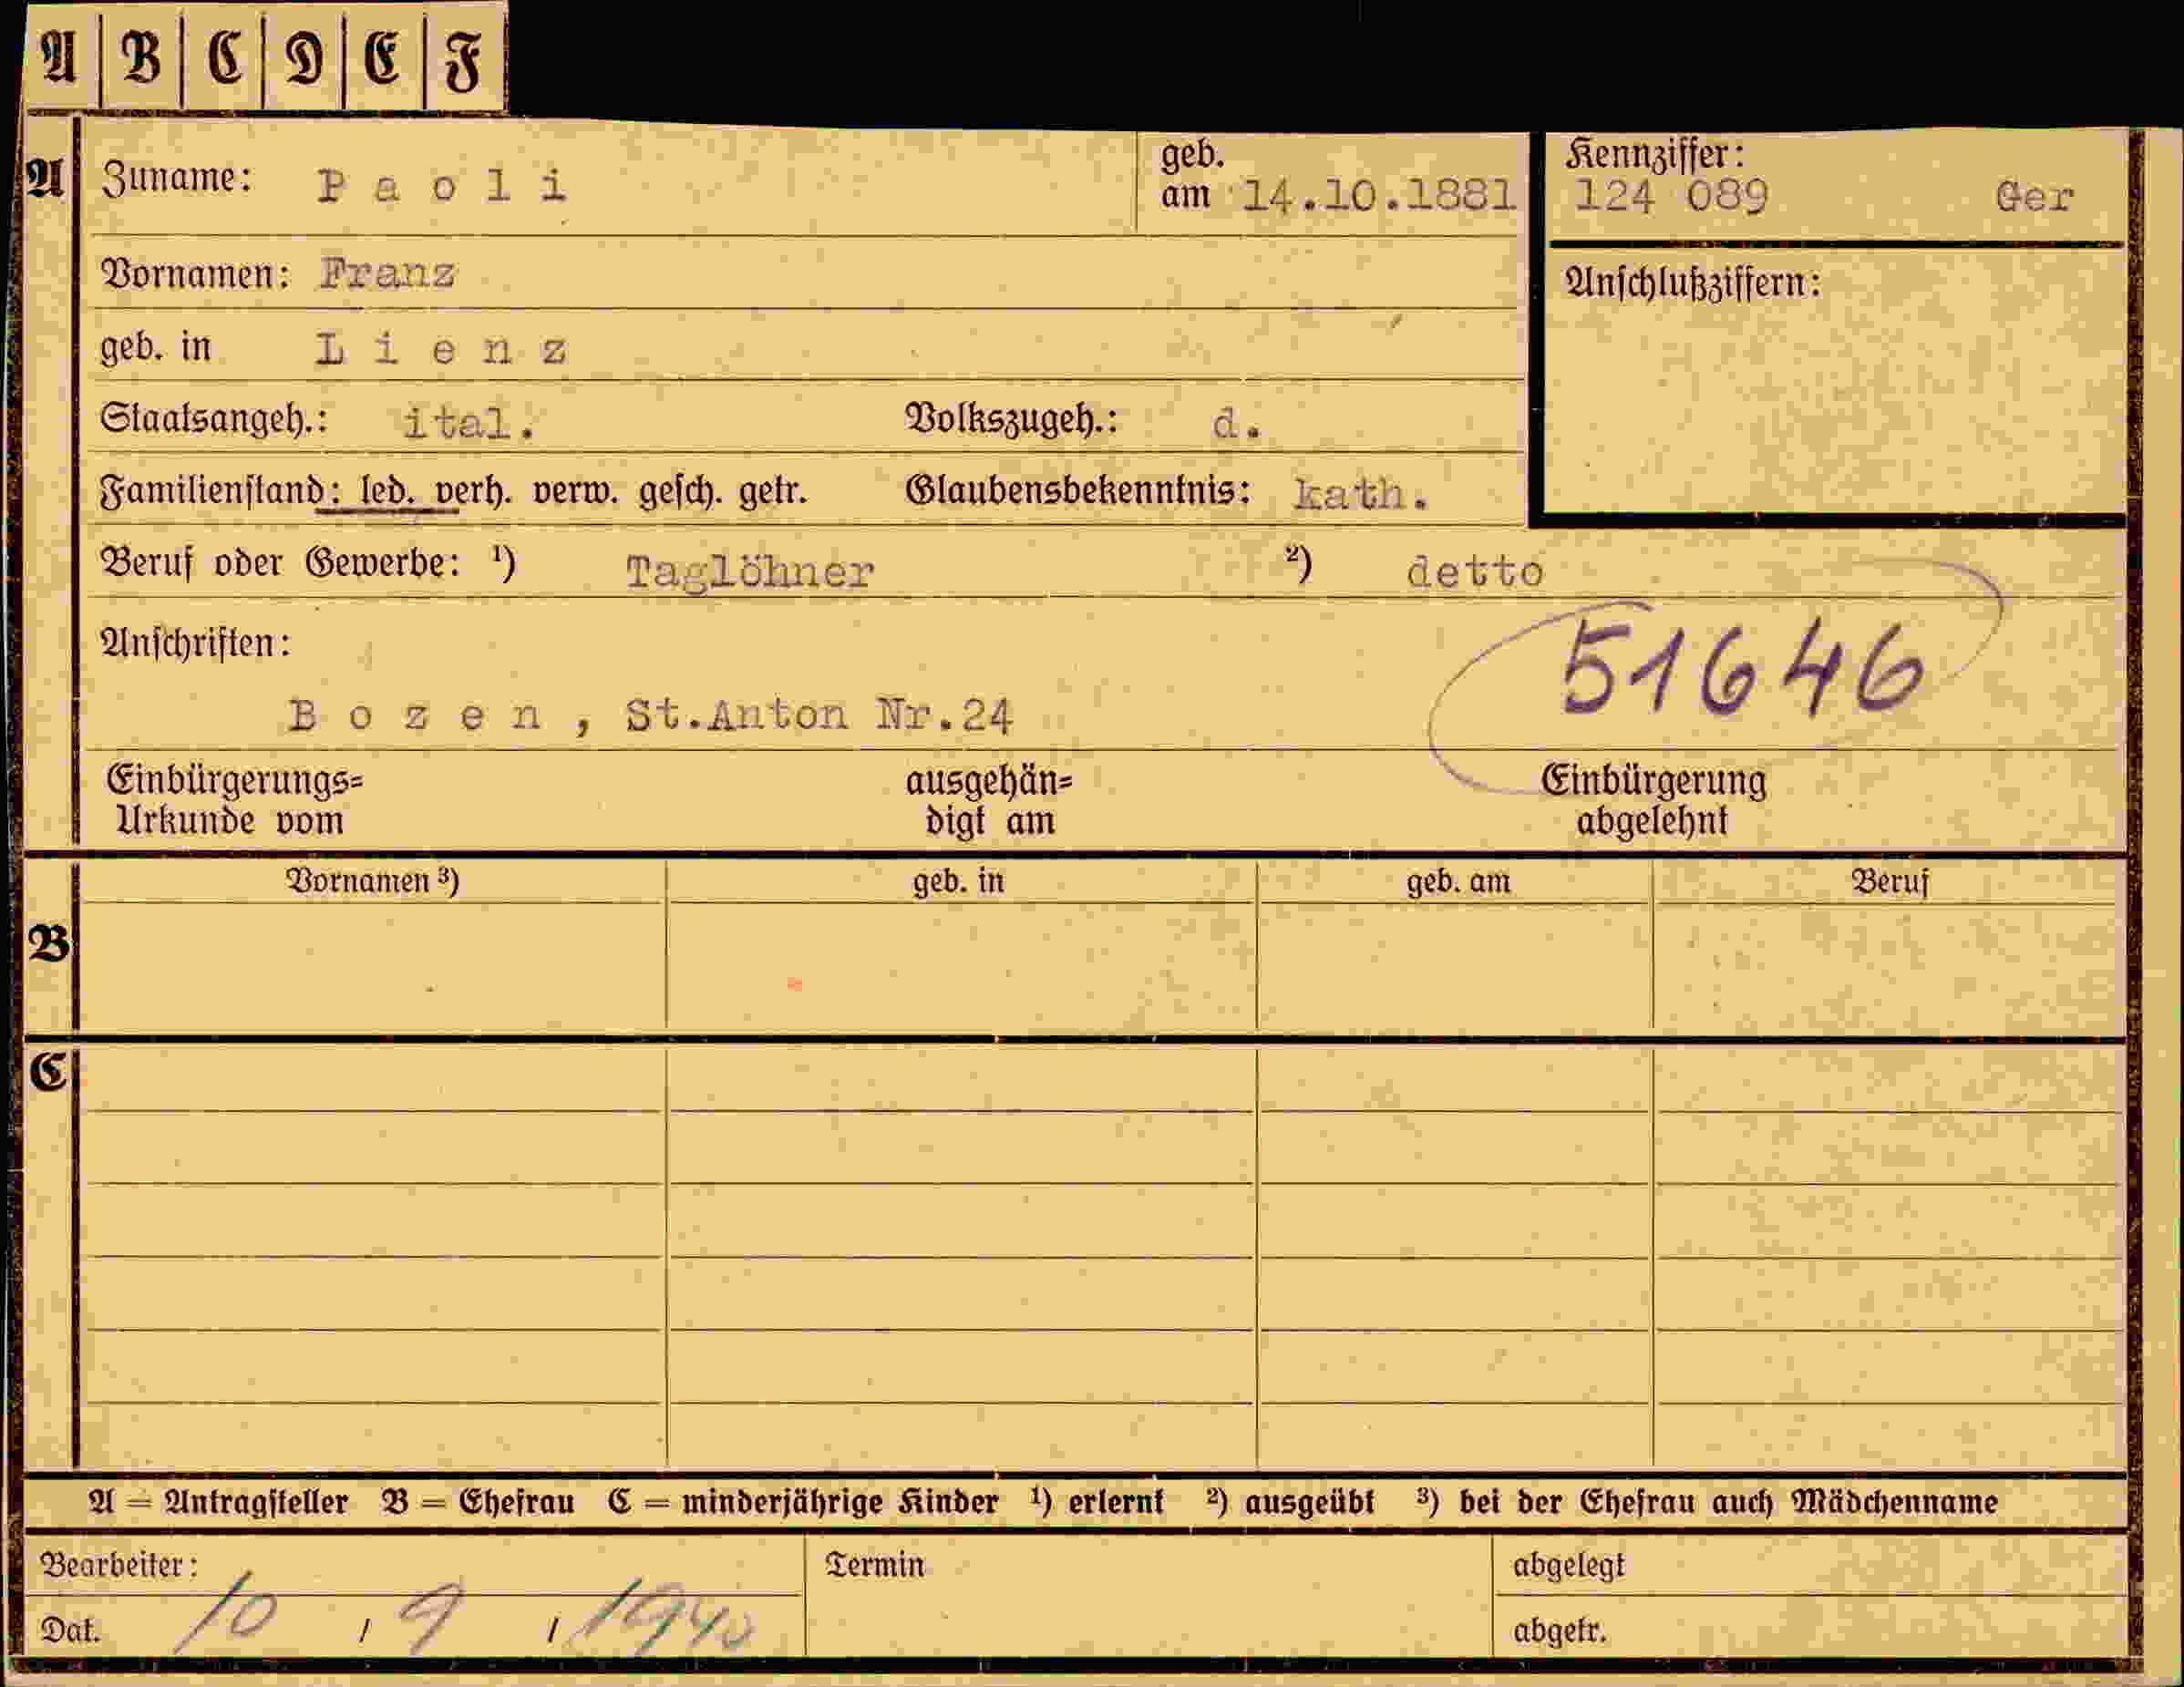 A B C D E F
A Zuname: Paoli geb. am 14.10.1881 Kennziffer: 124 089 Ger
Vornamen: Franz Anschlußziffern:
geb. in Lienz
Staatsangeh.: ital. Volkszugeh.: d.
Familienstand: led. verh. verw. gesch. getr. Glaubensbekenntnis: kath.
Beruf oder Gewerbe: ¹) Taglöhner ²) detto
Anschriften: 51646
Bozen, St.Anton Nr.24
Einbürgerungs= ausgehän= Einbürgerung
Urkunde vom digt am abgelehnt
Vornamen ³) geb. in geb. am Beruf
B
C
A = Antragsteller B = Ehefrau C = minderjährige Kinder ¹) erlernt ²) ausgeübt ³) bei der Ehefrau auch Mädchenname
Bearbeiter: Termin abgelegt
Dat. 10 / 9 / 1940 abgetr.